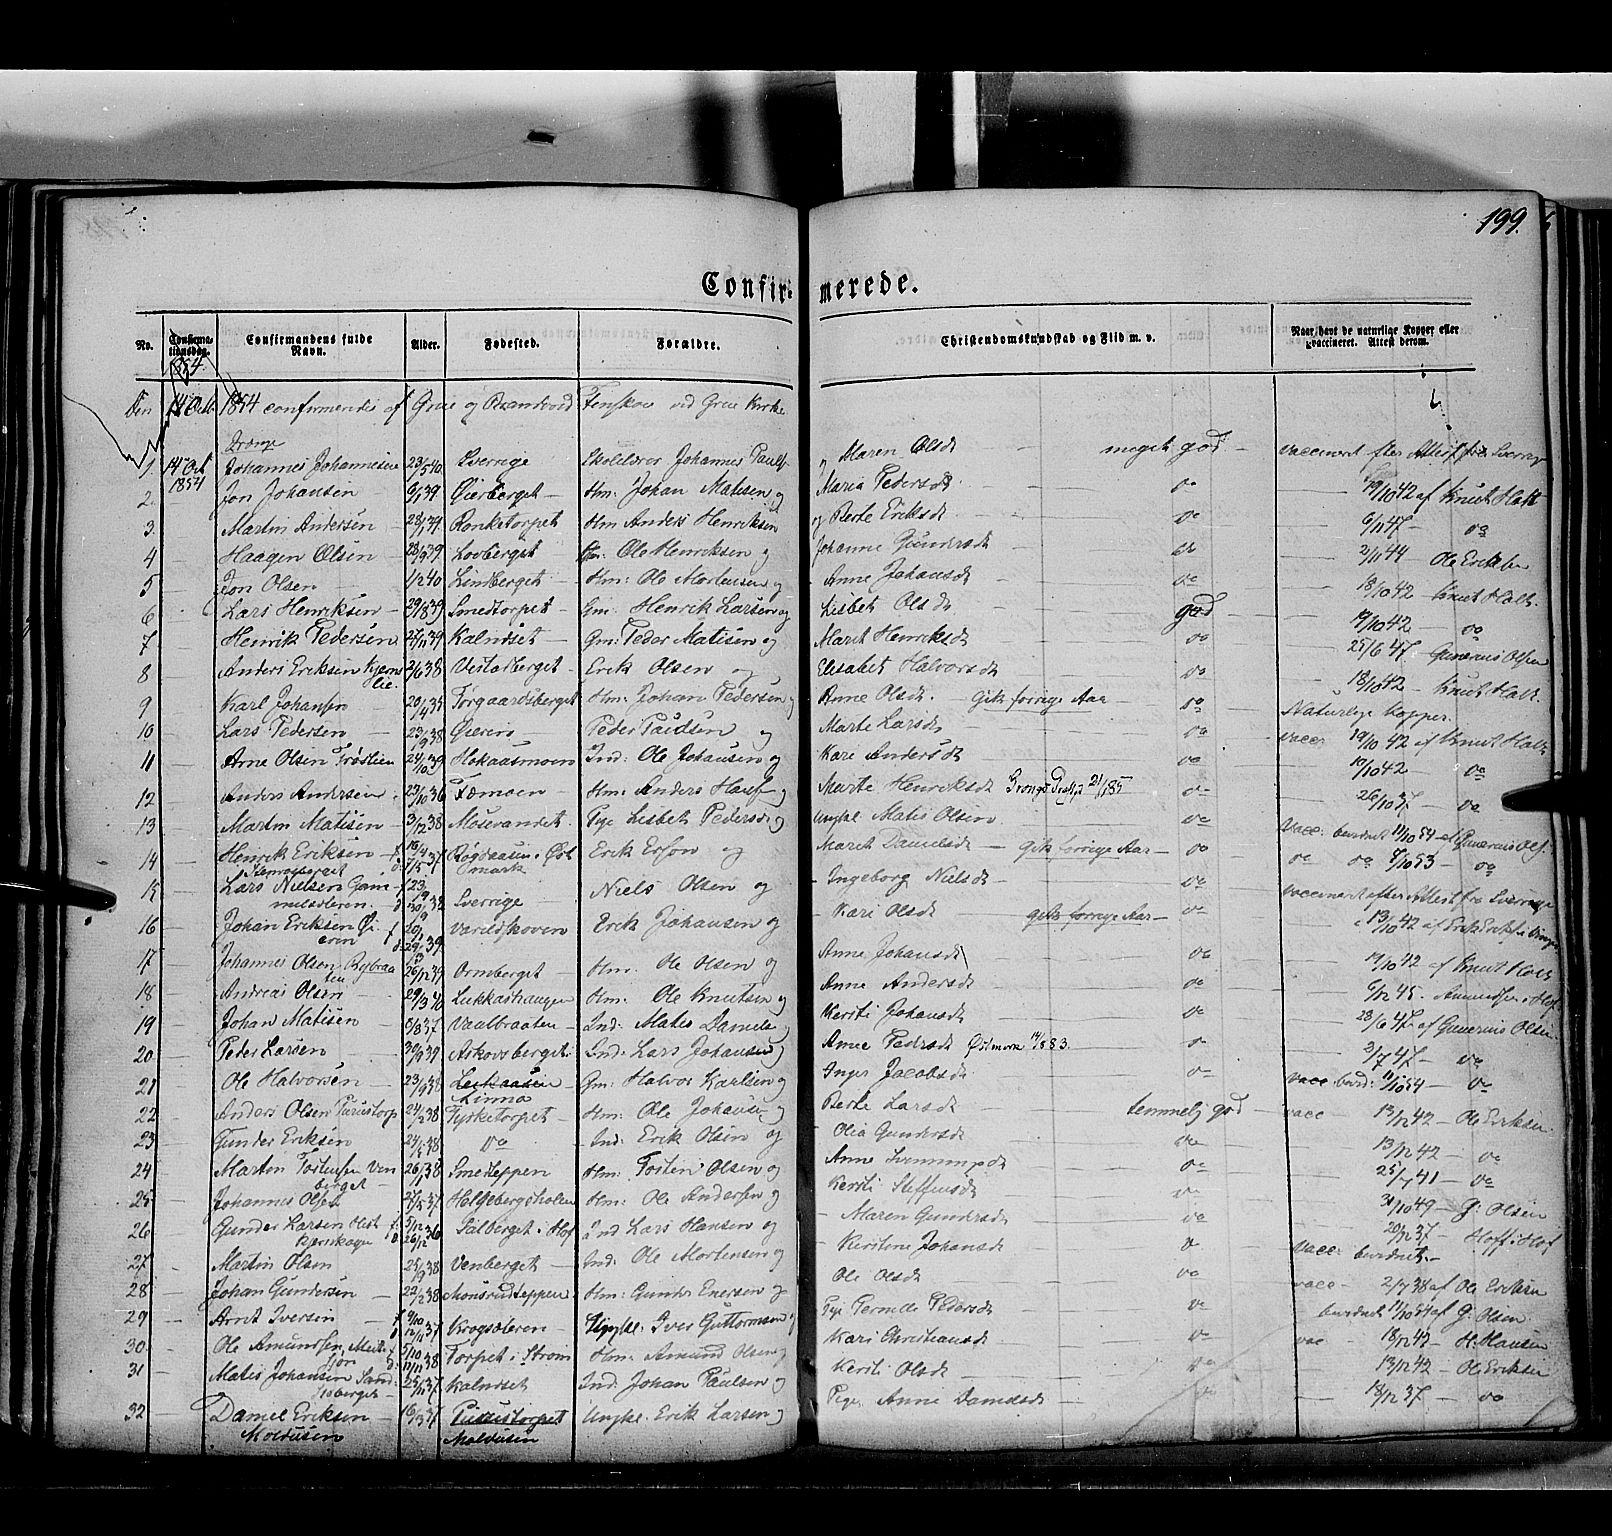 199.
Confirmerede.
No. Confirmationsdag. Confirmandens fulde Navn. Alder. Fødested. Forældre. Christendomskundskab og Flid m. v. Naar havt de naturlige Kopper eller vaccineret. Attest derom.
1854
Den 14 Octb 1854 confirmeredes af Grue og Brandvold ved Grue Kirke
1. 14 Oct 1854 Johannes Johannesen 23/5 40 Sverrige Skolelærer Johannes Pauls. og Maren Olsd. meget god vaccineret efter Attest fra Sverrige
2. Jon Johansen 6/1 39 Øierberget Hm: Johan Matisen og Maria Pedersd. do 19/10 42 af Knut Holt
3. Martin Andersen 28/1 39 Ronketorpet Hm Anders Henriksen og Berte Eriksd. do 6/11 47 do
4 Haagen Olsen 28/9 39 Lovberget Hm: Ole Henriksen og Johanne Gundersd. do 2/11 44 Ole Eriksen
5 Jon Olsen 1/2 40 Lindberget Hm: Ole Mortensen og Anne Johansd. do 18/10 42 Knut Holt.
6 Lars Henriksen 29/8 39 Smedtorpet Gm: Henrik Larsen og Lisbet Olsd. god 19/10 42 do
7 Henrik Pedersen 27/11 39 Kalneset Gm: Peder Matisen og Marit Henriksd. do 25/6 47 Gunerius Olsen
8 Anders Eriksen Kjernlie. 2/6 38 Vestaberget Erik Olsen og Elisabet Halvorsd. do 18/10 42 Knut Holt.
9 Karl Johansen 20/4 39 Torgaardsberget Hm: Johan Pedersen og Anne Olsd. Gik forrige Aar do Naturlige Kopper.
10 Lars Pedersen 29/9 38 Øieren Peder Paulsen og Marte Larsd. do vacc 19/10 42 af Knut Holt
11 Arne Olsen Frødlien 24/10 39 Hokaasmoen Ind: Ole Johansen og Kari Andersd. do 19/10 42 do
12 Anders Andersen 23/10 36 Tæmoen Hm: Anders Hans. og Marte Henriksd. do 26/10 37 do
13 Martin Matisen 3/12 38 Mosevandet Pige Lisbet Pedersd. og Ungkl Matis Olsen do vacc: burdnet 11/10 54 af Gunerius Ols.
14 Henrik Eriksen Rogdeaasen i Østmark Erik Ersson og Marit Danielsd. Gik forrige Aar do do do 4/10 53 do
15 Lars Nielsen Gammelsæteren. Sverrige Niels Olsen og Ingeborg Nielsd. do vaccineret efter Attest fra Sverrige
16 Johan Eriksen Øieren Varildskoven Erik Johansen og Kari Olsd. gik forrige Aar do 13/10 42
17 Johannes Olsen Rybraaten 26/12 39 Ormberget Hm. Ole Olsen og Anne Johansd. do 19/10 42 af Knut Holt
18 Andreas Olsen 29/3 40 Lukkashaugen Hm: Ole Knutsen og Anne Andersd. do 6/12 45.
19 Johan Matisen 5/8 37 Vaalbraaten Ind: Matis Daniels. og Kersti Johansd. do 28/6 47 af Gunerius Olsen
20 Peder Larsen 30/3 39 Askovsberget Ind: Lars Johansen og Anne Pedersd. Østmark 14/8 83. do 3/7 47 do
21 Ole Halvorsen 23/9 38 Linna Gm: Halvor Karlsen og Inger Jacobsd. do vacc burd: 11/10 54 do
22 Anders Olsen Purustorp 24/2 38 Tyrketorpet Hm: Ole Johansen og Berte Larsd. temmelig god vacc 13/12 42 Ole Eriksen
23 Gunder Eriksen 24/5 38 do Ind: Erik Olsen og Olia Gundersd. do 13/12 42 do
24 Martin Tostensen Venberget 26/1 38 Smedteppen Hm: Tosten Olsen og Anne do 25/7 41 do
25 Johannes Olsen 27/5 37 Holfsbergsholen Hm: Ole Andersen og Kersti Steffensd. do 31/10 49 G: Olsen
26 Gunder Larsen Holst Salberget i Hof Ind Lars Hansen og Maren Gundersd. do 20/12 37 Hoff i Hof
27 Martin Olsen 25/9 38 Venberget Ind: Ole Mortensen og Kerstine Johansd. do vacc burdnet.
28 Johan Gundersen 22/2 38 Monsrudteppen Hm: Gunder Enersen og Ole Olsd. do vacc 2/7 38 af Ole Eriksen
29 Arnt Iversen Krogsæteren Ungkl. Iver Guttormsen og Pige Pernille Pedersd. do burdnet 11/10 54 af G: Olsen
30 Ole Amundsen Torpet i Strøm Hm. Amund Olsen og Kari Christiansd. do vac 18/12 42 H. Hansen
31 Matis Johansen 25/11 37 Kalneset Ind: Johan Paulsen og Kersti Olsd. do 13/12 42 Ole Eriksen
32 Daniel Eriksen Moldusen 16/3 37 Purustorpet Moldusen Ungkl. Erik Larsen og Pige. Anne Danielsd. do 18/12 37 do